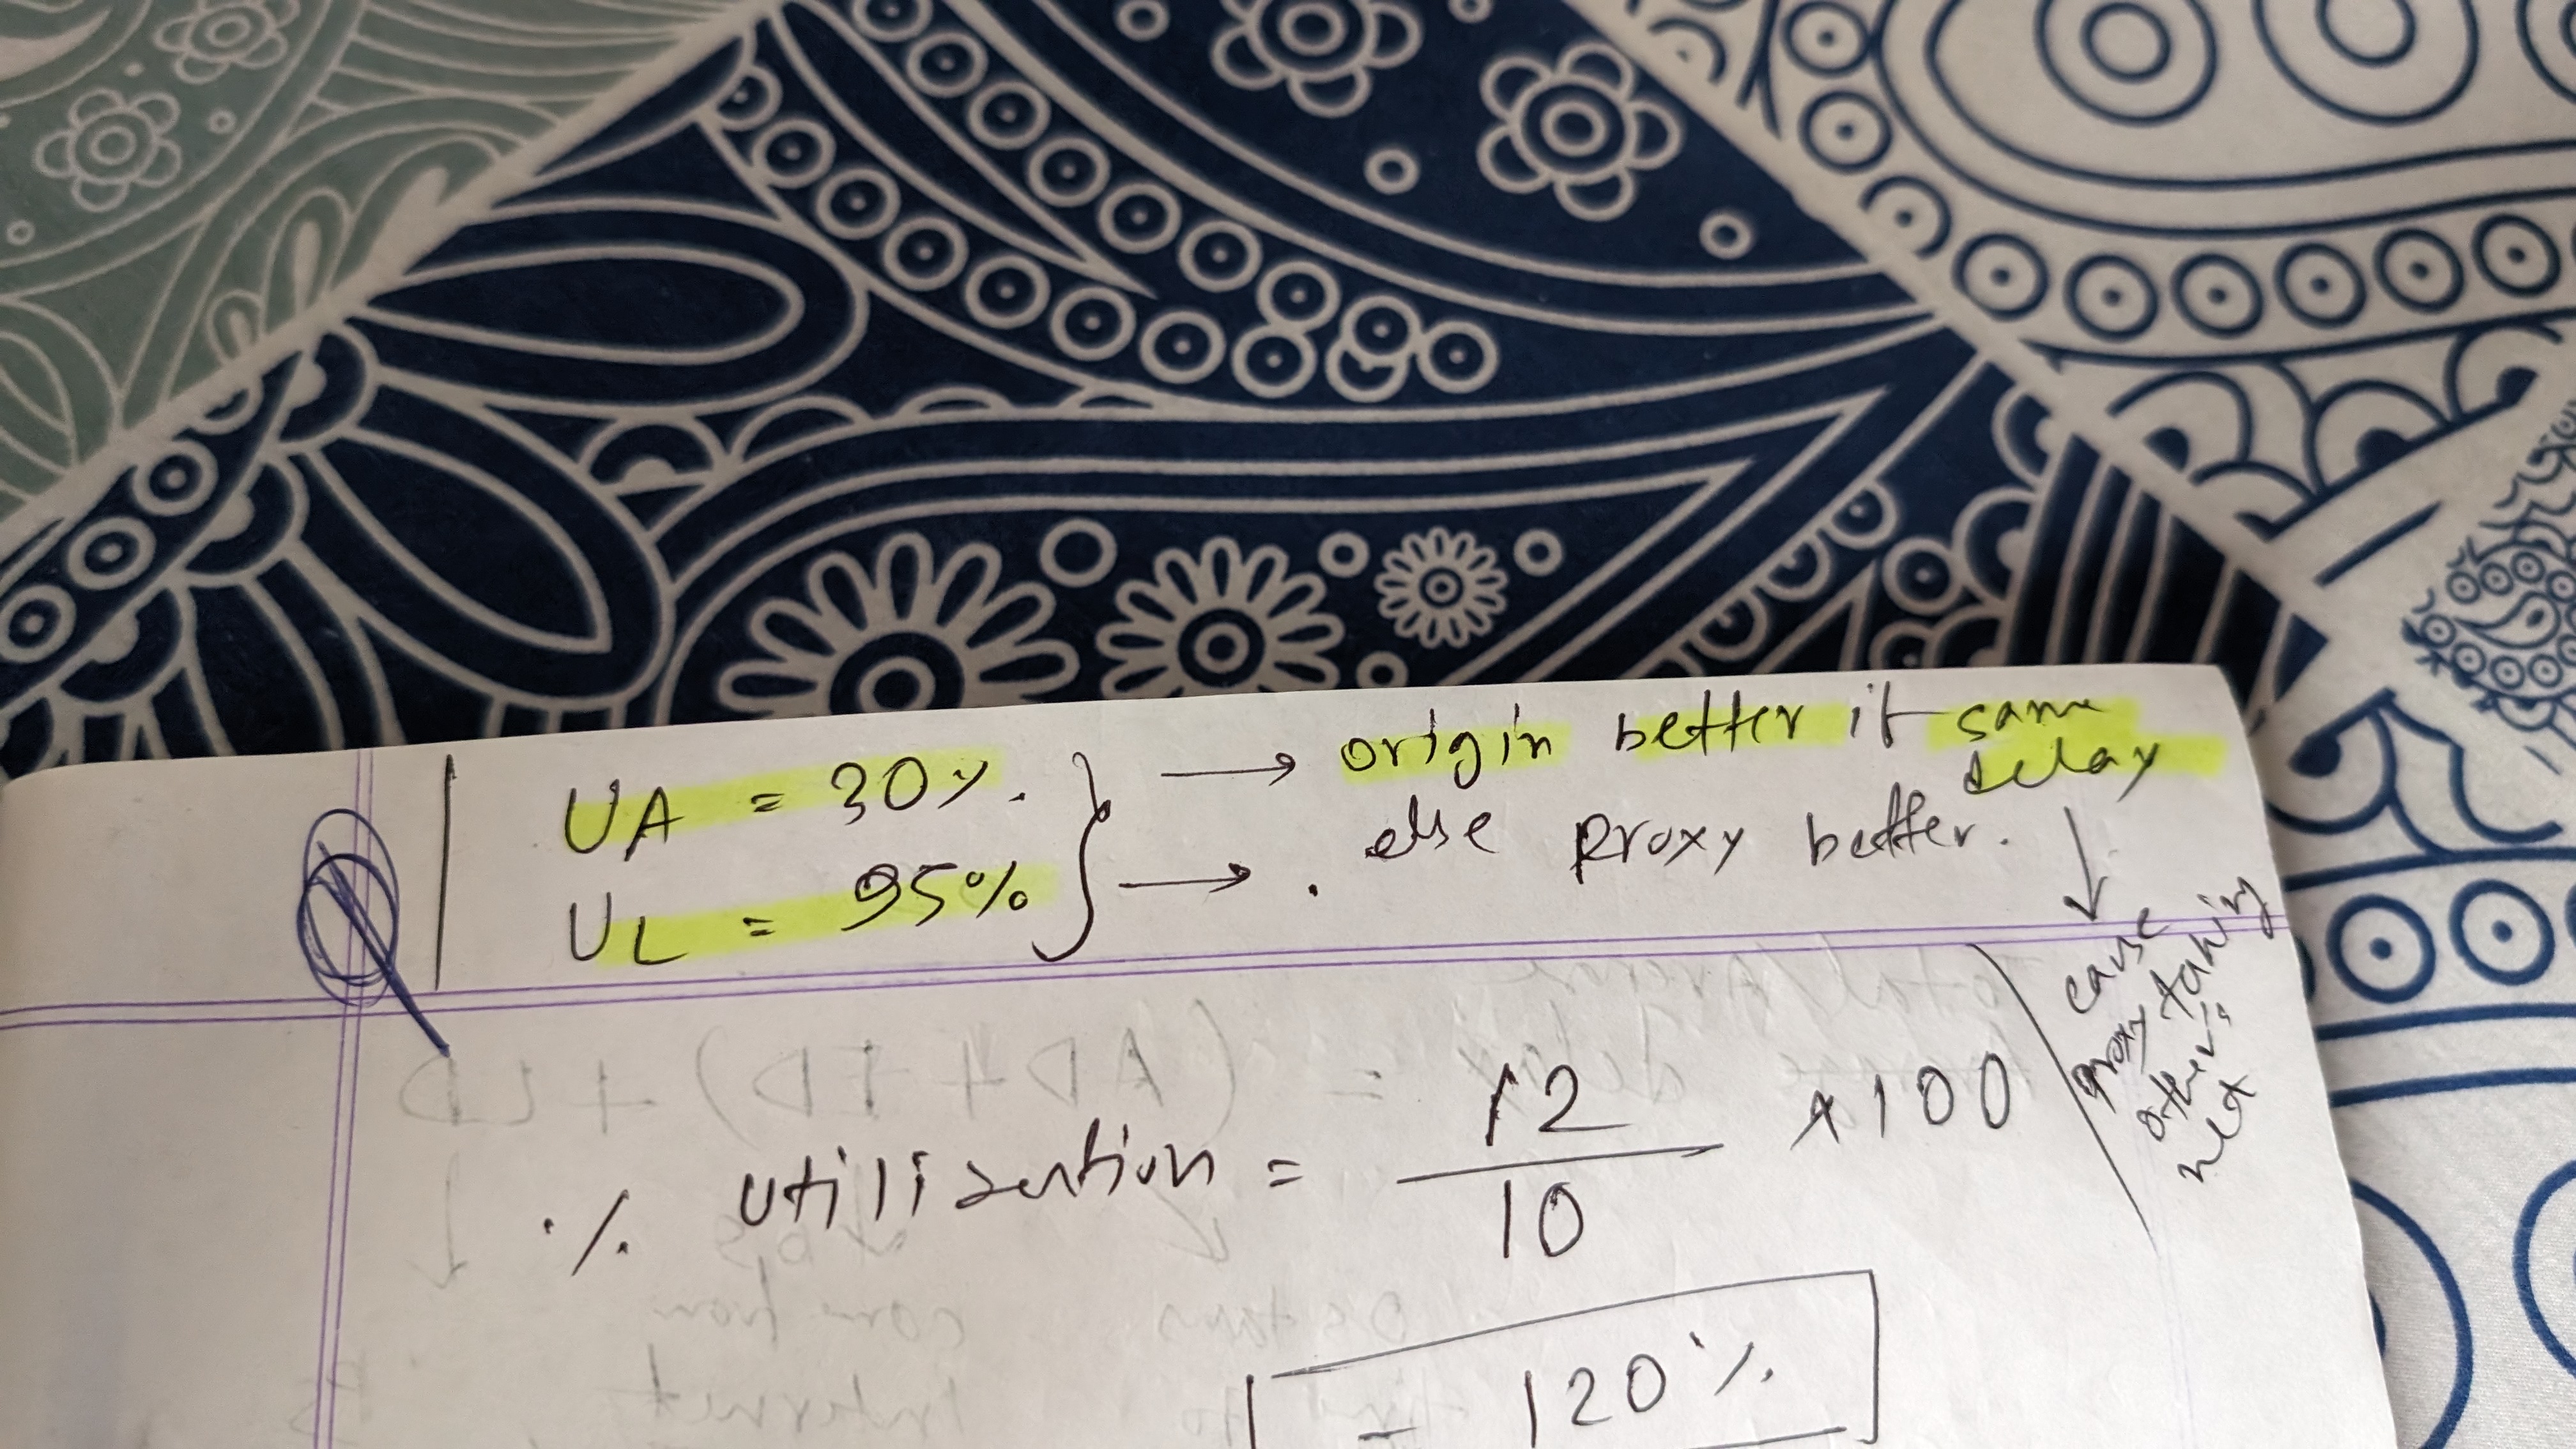 UA = 30%. } → origin better if same delay
UL = 95% } → . else proxy better.
↓
cause
proxy taking
other's
net
% utilization = 12/10 × 100
= 120%